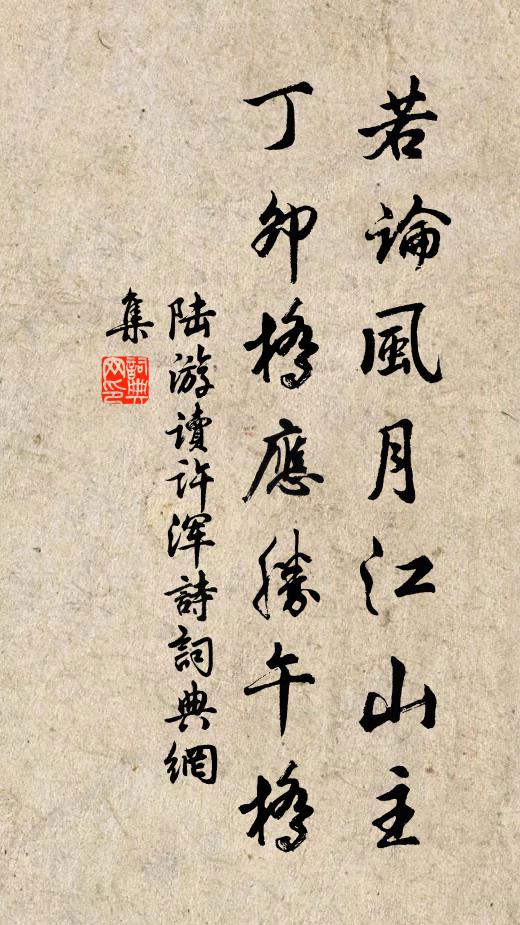 若論風月江山主
丁卯橋應勝午橋
陆游讀许浑詩詞典網
集
詞典
网印